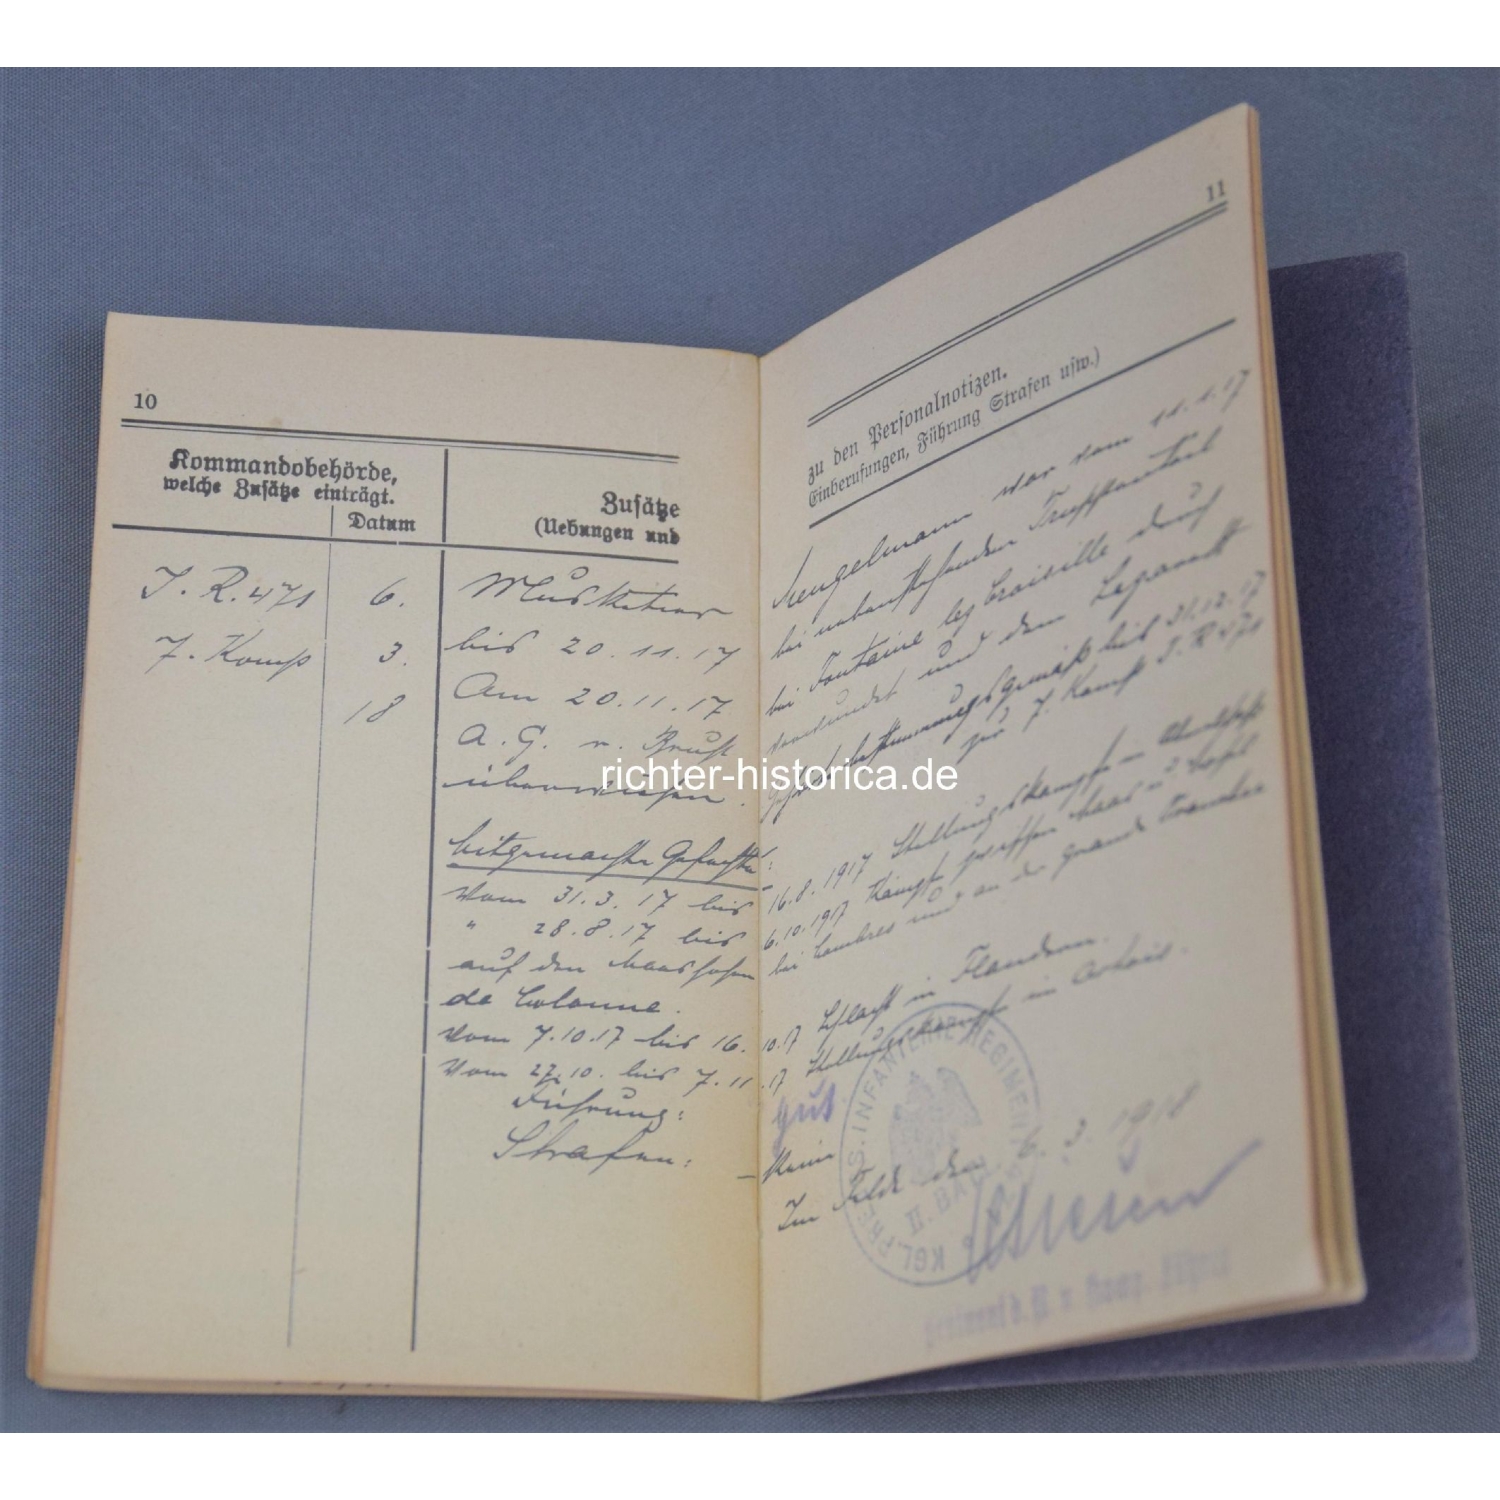 10
Kommandobehörde,
welche Zusätze einträgt.
Datum
Zusätze
(Uebungen und
J. R. 471
7. Komp
6.
3.
18
Musketier
bis 20.11.17
Am 20.11.17
A. G. v.
überwiesen.
mitgemachte Gefechte:
Vom 31.3.17 bis
" 28.8.17 bis
auf den Maashöhen
de Colonne.
Vom 7.10.17 bis 16.
Vom 27.10. bis 7.11
Führung:
Strafen:
11
zu den Personalnotizen.
Einberufungen, Führung Strafen usw.)
war vom 11.1.17
bei nebenstehenden Truppenteil
bei Fontaine les Croisille durch
verwundet und dem Lazarett
bis 31.12.17
zur 7. Komp J. R 471
16.8.1917 Stellungskämpfe
6.10.1917 Kämpfe zwischen Maas u
bei und an der Grande Tranchee
10.17 Schlacht in Flandern.
.17 Stellungskämpfe im Artois.
gut.
- Keine
Im Felde den 6.3.1918
KGL. PREUSS. INFANTERIE REGIMENT
II. BATL
richter-historica.de